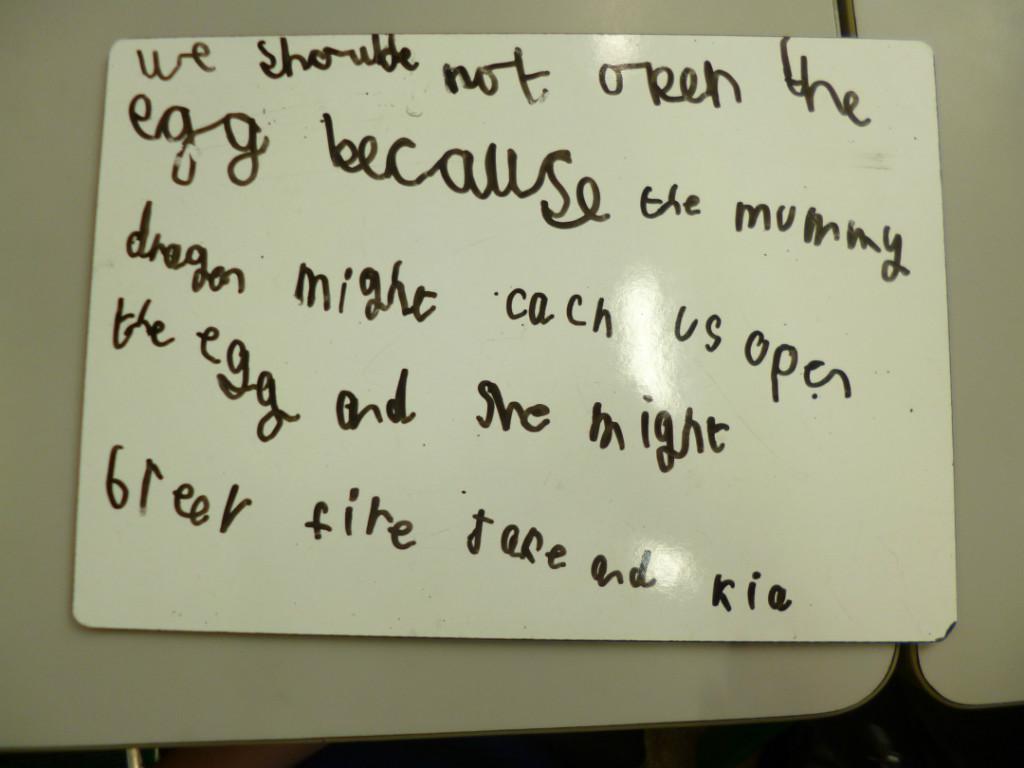 we shoulde not open the
egg because the mummy
dragon might cach us open
the egg and she might
breer fire Jake and kia